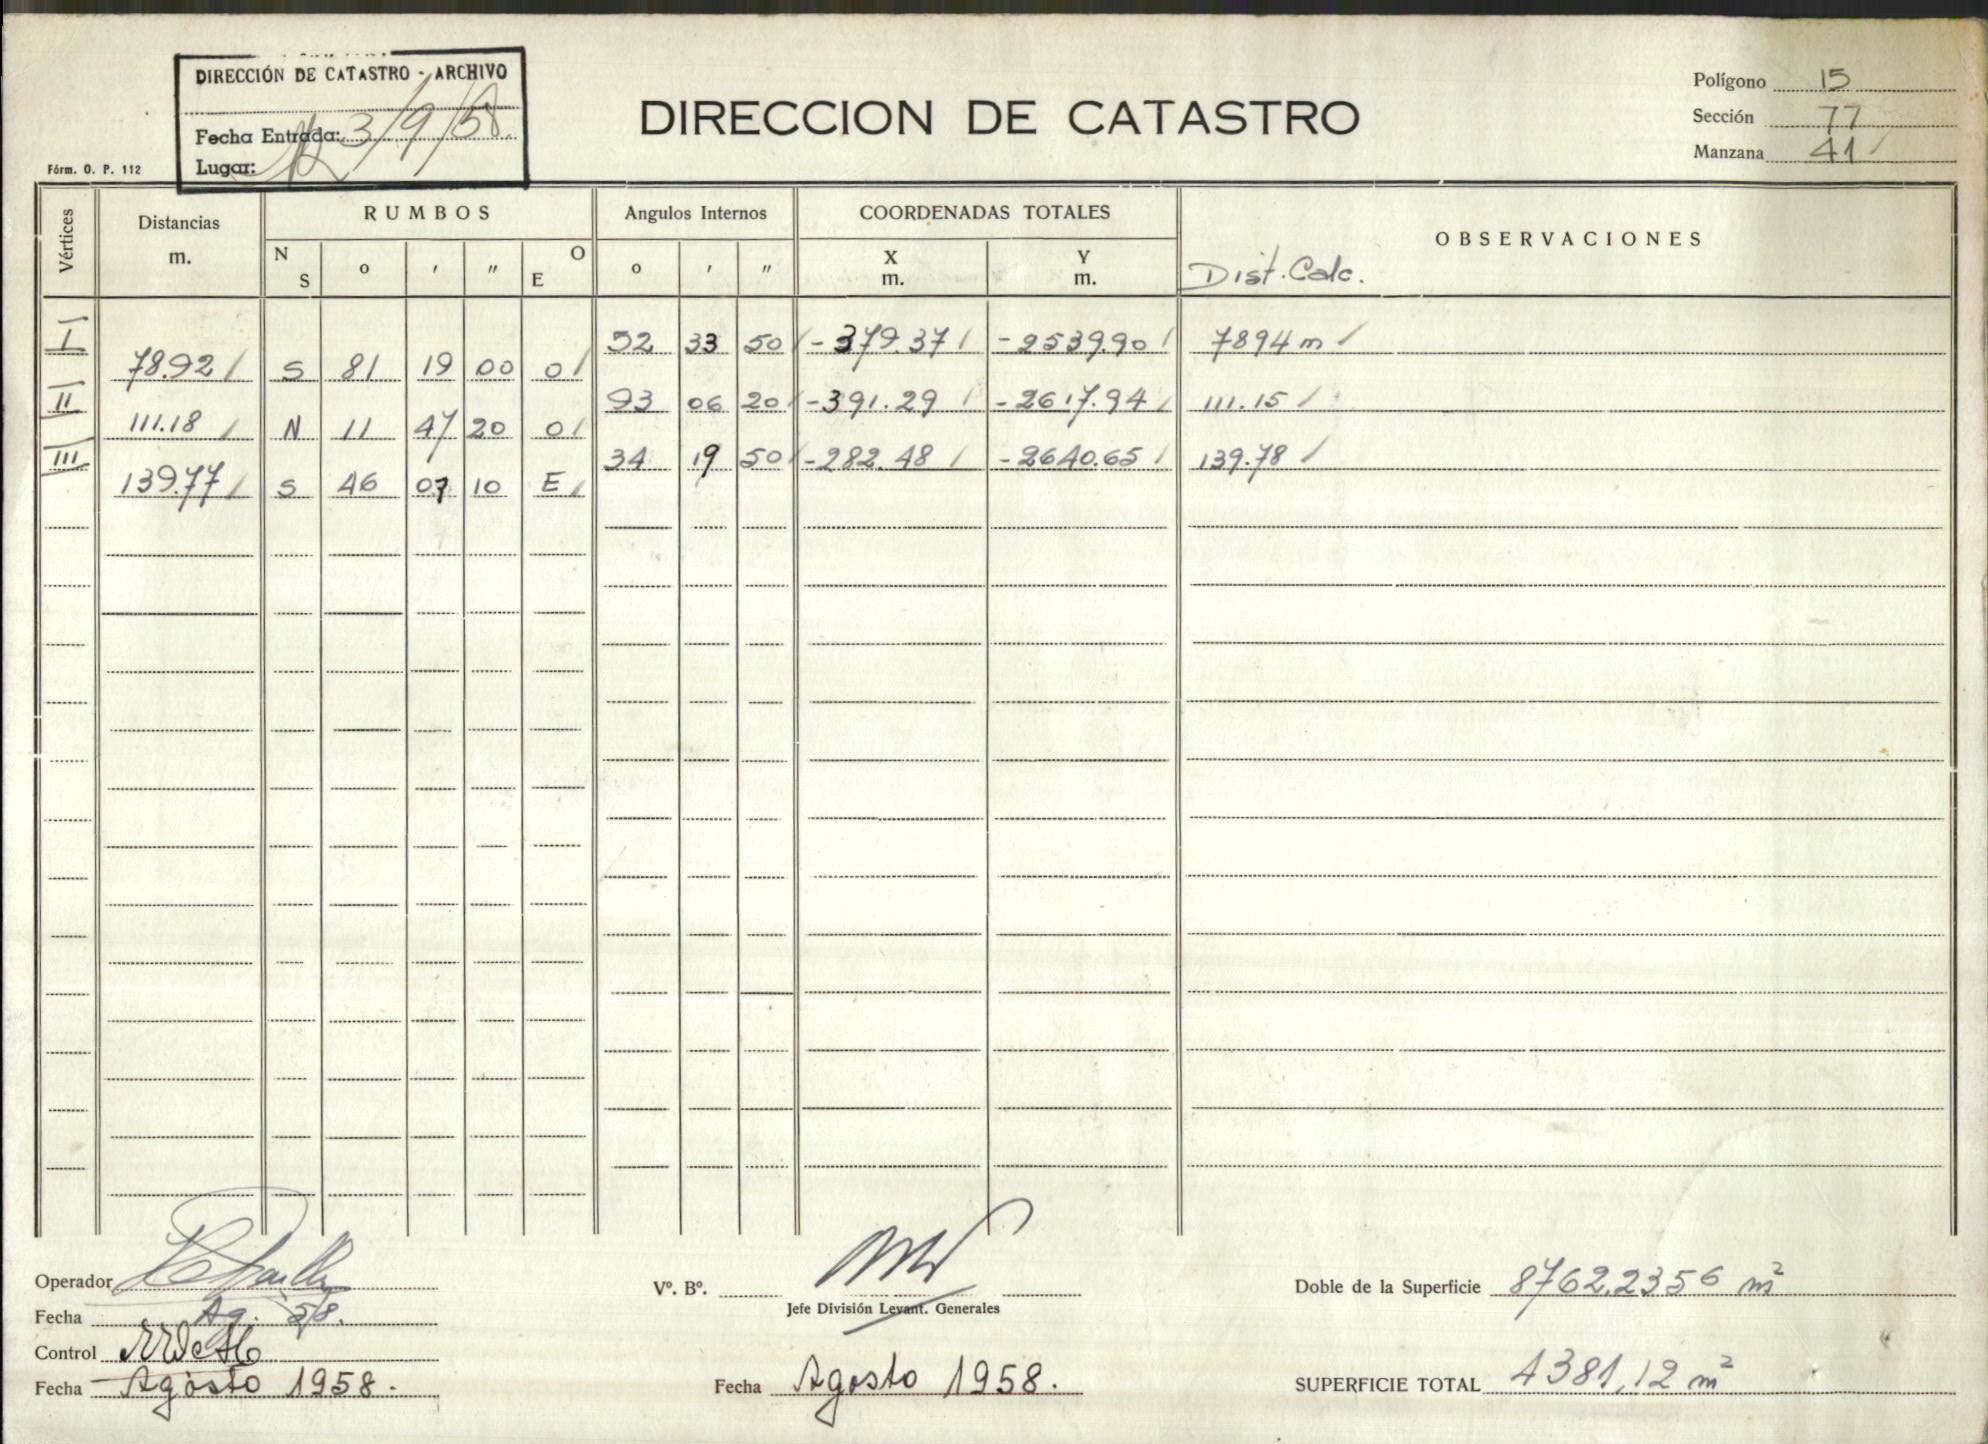 DIRECCIÓN DE CATASTRO - ARCHIVO
Fecha Entrada: 3/9/58
Lugar:
Fórm. O. P. 112
DIRECCION DE CATASTRO
Polígono 15
Sección 77
Manzana 41
Vértices Distancias m. RUMBOS Angulos Internos COORDENADAS TOTALES OBSERVACIONES
N S o ′ ″ O E o ′ ″ X m. Y m. Dist. Calc.
I 52 33 50 -379.37 -2539.90 7894 m
78.92 S 81 19 00 O
II 93 06 20 -391.29 -2617.94 111.15
111.18 N 11 47 20 O
III 34 19 50 -282.48 -2640.65 139.78
139.77 S 46 07 10 E
Operador
Fecha Ag. 58.
Control
Fecha Agosto 1958.
Vº. Bº.
Jefe División Levant. Generales
Fecha Agosto 1958.
Doble de la Superficie 8762.2356 m²
SUPERFICIE TOTAL 4381,12 m²